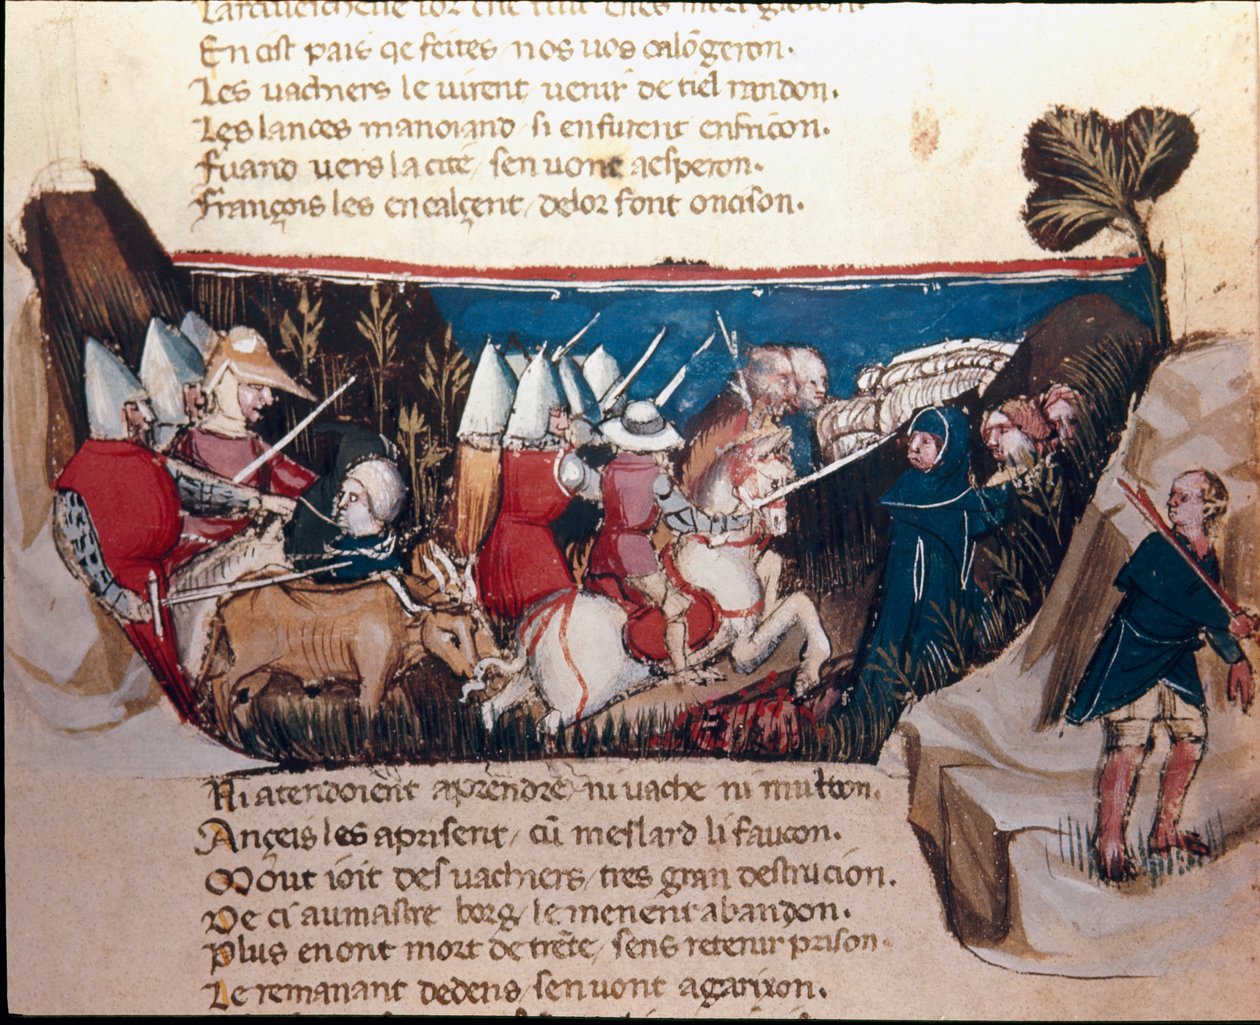 En cist païs qe feites nos vos calōgeron.
Les vachiers le virent venir de tiel randon.
Les lances manoiand si enfurent enfricon.
Fuand vers la cité sen vont a esperon.
François les encalçent delor font oncison.
Ni atendoient aprendre ni vache ni multon.
Ançeis les aprisent cū meslard li faucon.
Mout ioit des vachiers tres gran destrucion.
De ci au mastre borg le menent abandon.
Plus en ont mort de trēte sens retenir prison.
Le remanant dedens sen vont a garixon.